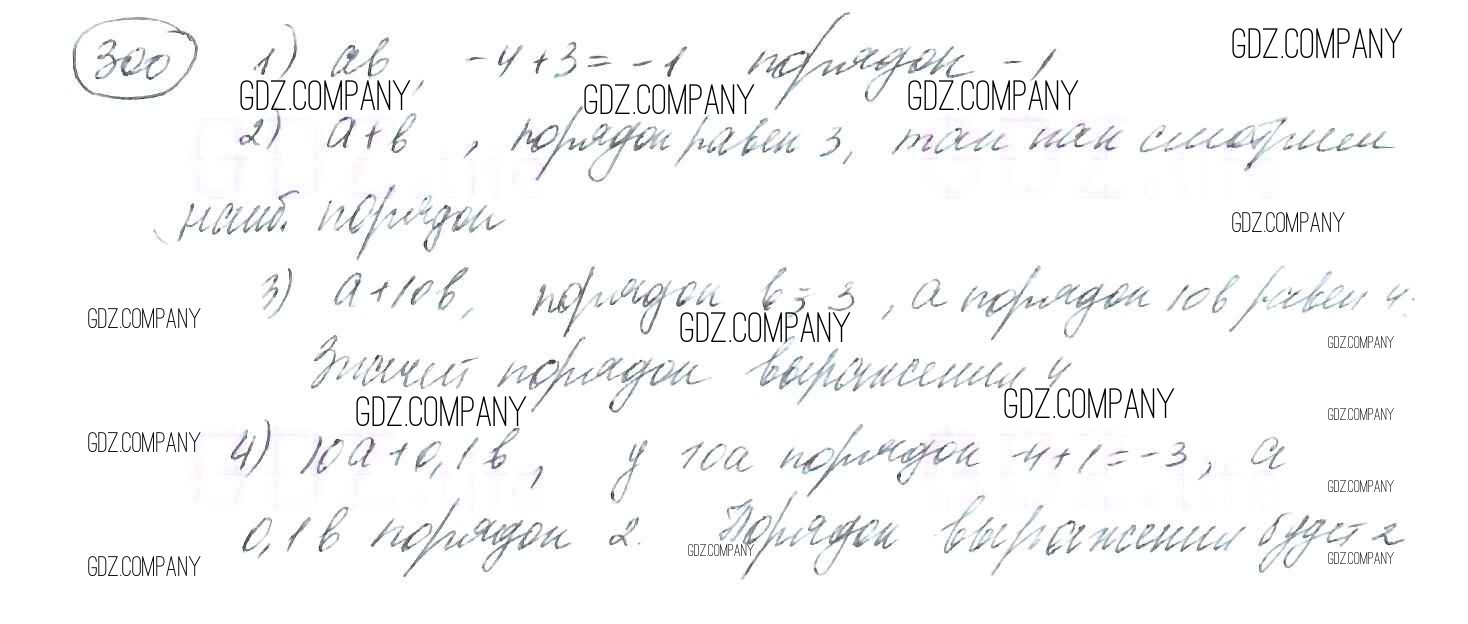 300 1) ab, -4+3=-1 порядок -1 GDZ.COMPANY
GDZ.COMPANY GDZ.COMPANY GDZ.COMPANY
2) a+b, порядок равен 3, так как смотрим
наиб. порядок GDZ.COMPANY
3) a+10b, порядок b=3, а порядок 10b равен 4.
GDZ.COMPANY GDZ.COMPANY GDZ.COMPANY
Значит порядок выражения 4
GDZ.COMPANY GDZ.COMPANY GDZ.COMPANY
GDZ.COMPANY 4) 10a+0,1b, у 10a порядок -4+1=-3, а
GDZ.COMPANY
0,1b порядок 2. Порядок выражения будет 2
GDZ.COMPANY GDZ.COMPANY GDZ.COMPANY